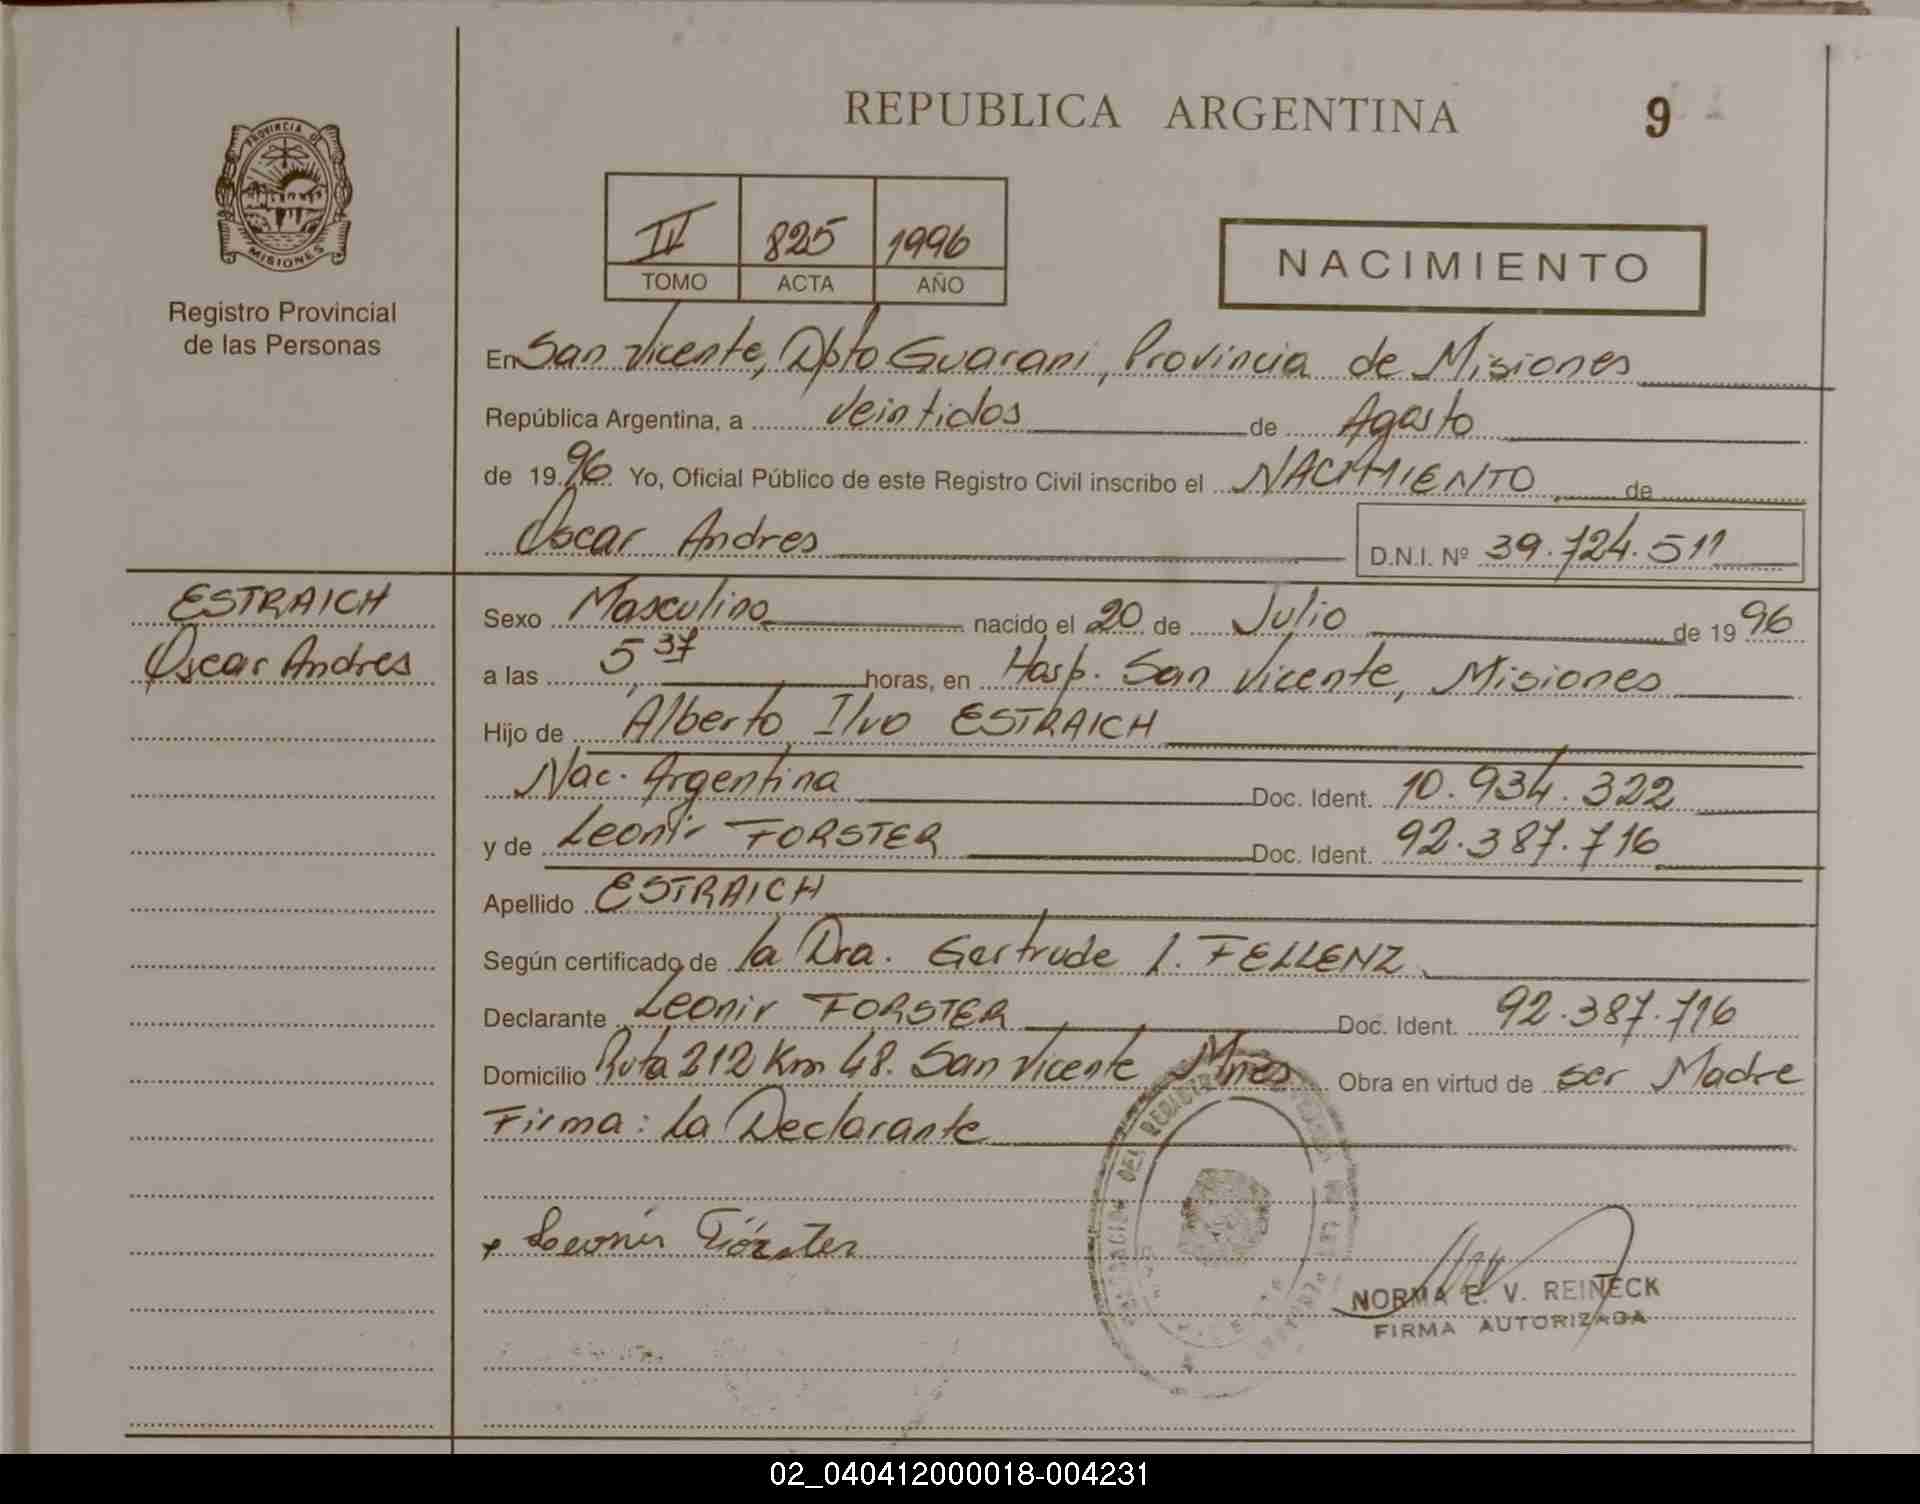 REPUBLICA ARGENTINA
9
PROVINCIA DE
MISIONES
Registro Provincial
de las Personas
IV 825 1996
TOMO ACTA AÑO
NACIMIENTO
En San Vicente, Dpto Guarani, Provincia de Misiones
República Argentina, a veintidos de Agosto
de 1996 Yo, Oficial Público de este Registro Civil inscribo el NACIMIENTO de
Oscar Andres D.N.I. Nº 39.724.511
ESTRAICH
Oscar Andres
Sexo Masculino nacido el 20 de Julio de 1996
a las 5,37 horas, en Hosp. San Vicente, Misiones
Hijo de Alberto Ilvo ESTRAICH
Nac. Argentina Doc. Ident. 10.934.322
y de Leonir FORSTER Doc. Ident. 92.387.716
Apellido ESTRAICH
Según certificado de la Dra. Gertrude I. FELLENZ
Declarante Leonir FORSTER Doc. Ident. 92.387.716
Domicilio Ruta 212 Km 48. San Vicente Mnes Obra en virtud de ser Madre
Firma: La Declarante
x Leonir Förster
NORMA E. V. REINECK
FIRMA AUTORIZADA
02_040412000018-004231